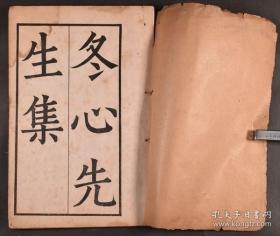 冬心先
生集
孔夫子旧书网